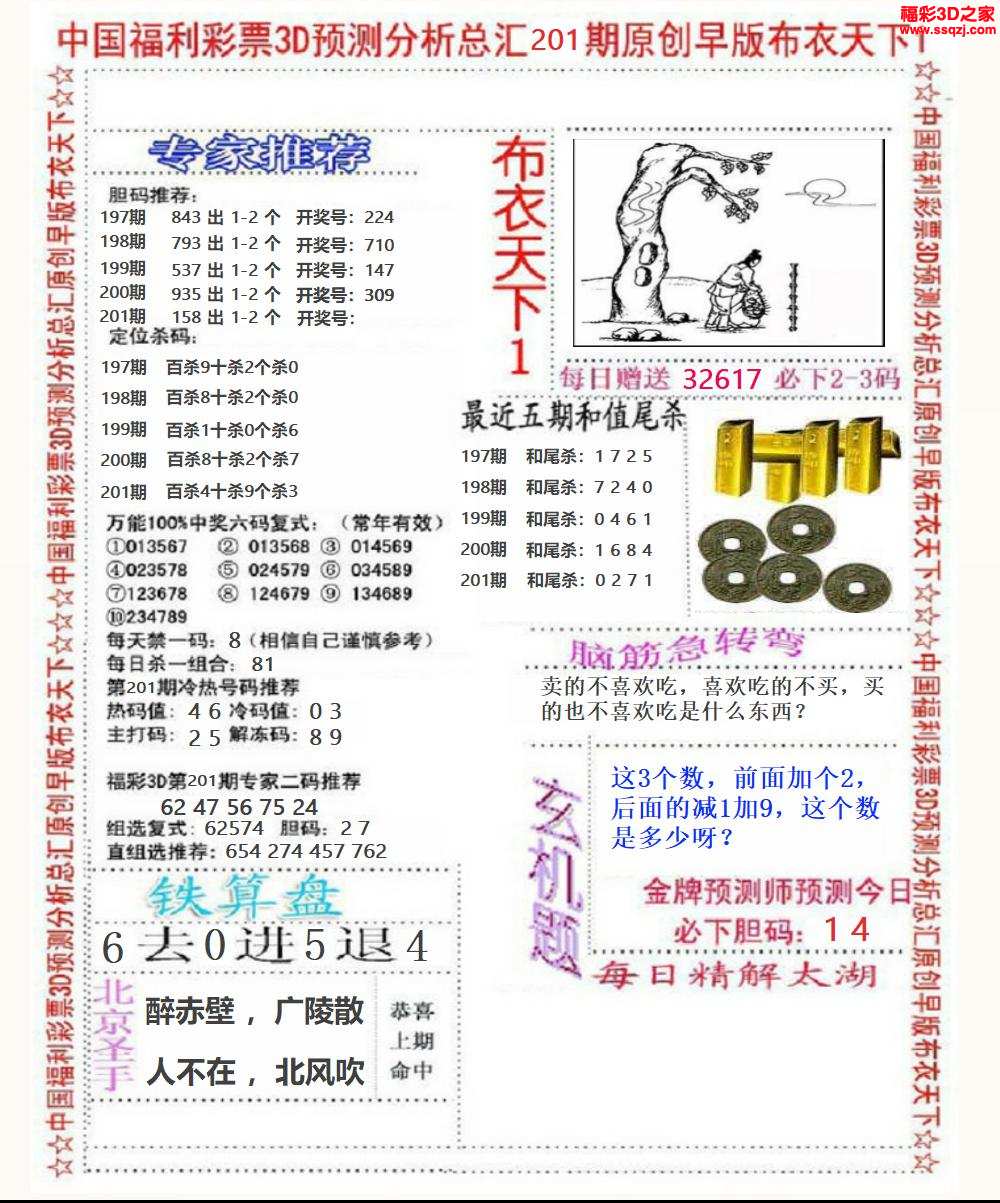 福彩3D之家
www.ssqzj.com
中国福利彩票3D预测分析总汇201期原创早版布衣天下1
☆☆中国福利彩票3D预测分析总汇原创早版布衣天下☆☆☆中国福利彩票3D预测分析总汇原创早版布衣天下☆☆
专家推荐
胆码推荐:
197期 843 出 1-2 个 开奖号: 224
198期 793 出 1-2 个 开奖号: 710
199期 537 出 1-2 个 开奖号: 147
200期 935 出 1-2 个 开奖号: 309
201期 158 出 1-2 个 开奖号:
定位杀码:
197期 百杀9十杀2个杀0
198期 百杀8十杀2个杀0
199期 百杀1十杀0个杀6
200期 百杀8十杀2个杀7
201期 百杀4十杀9个杀3
万能100%中奖六码复式: (常年有效)
①013567 ② 013568 ③ 014569
④023578 ⑤ 024579 ⑥ 034589
⑦123678 ⑧ 124679 ⑨ 134689
⑩234789
每天禁一码: 8(相信自己谨慎参考)
每日杀一组合: 81
第201期冷热号码推荐
热码值: 4 6 冷码值: 0 3
主打码: 2 5 解冻码: 8 9
福彩3D第201期专家二码推荐
62 47 56 75 24
组选复式: 62574 胆码: 2 7
直组选推荐: 654 274 457 762
铁算盘
6去0进5退4
北京圣手
醉赤壁，广陵散
人不在，北风吹
恭喜
上期
命中
布衣天下1
每日赠送 32617 必下2-3码
最近五期和值尾杀
197期 和尾杀: 1 7 2 5
198期 和尾杀: 7 2 4 0
199期 和尾杀: 0 4 6 1
200期 和尾杀: 1 6 8 4
201期 和尾杀: 0 2 7 1
脑筋急转弯
卖的不喜欢吃，喜欢吃的不买，买
的也不喜欢吃是什么东西?
玄机题
这3个数，前面加个2，
后面的减1加9，这个数
是多少呀?
金牌预测师预测今日
必下胆码: 1 4
每日精解太湖
☆☆中国福利彩票3D预测分析总汇原创早版布衣天下☆☆☆中国福利彩票3D预测分析总汇原创早版布衣天下☆☆